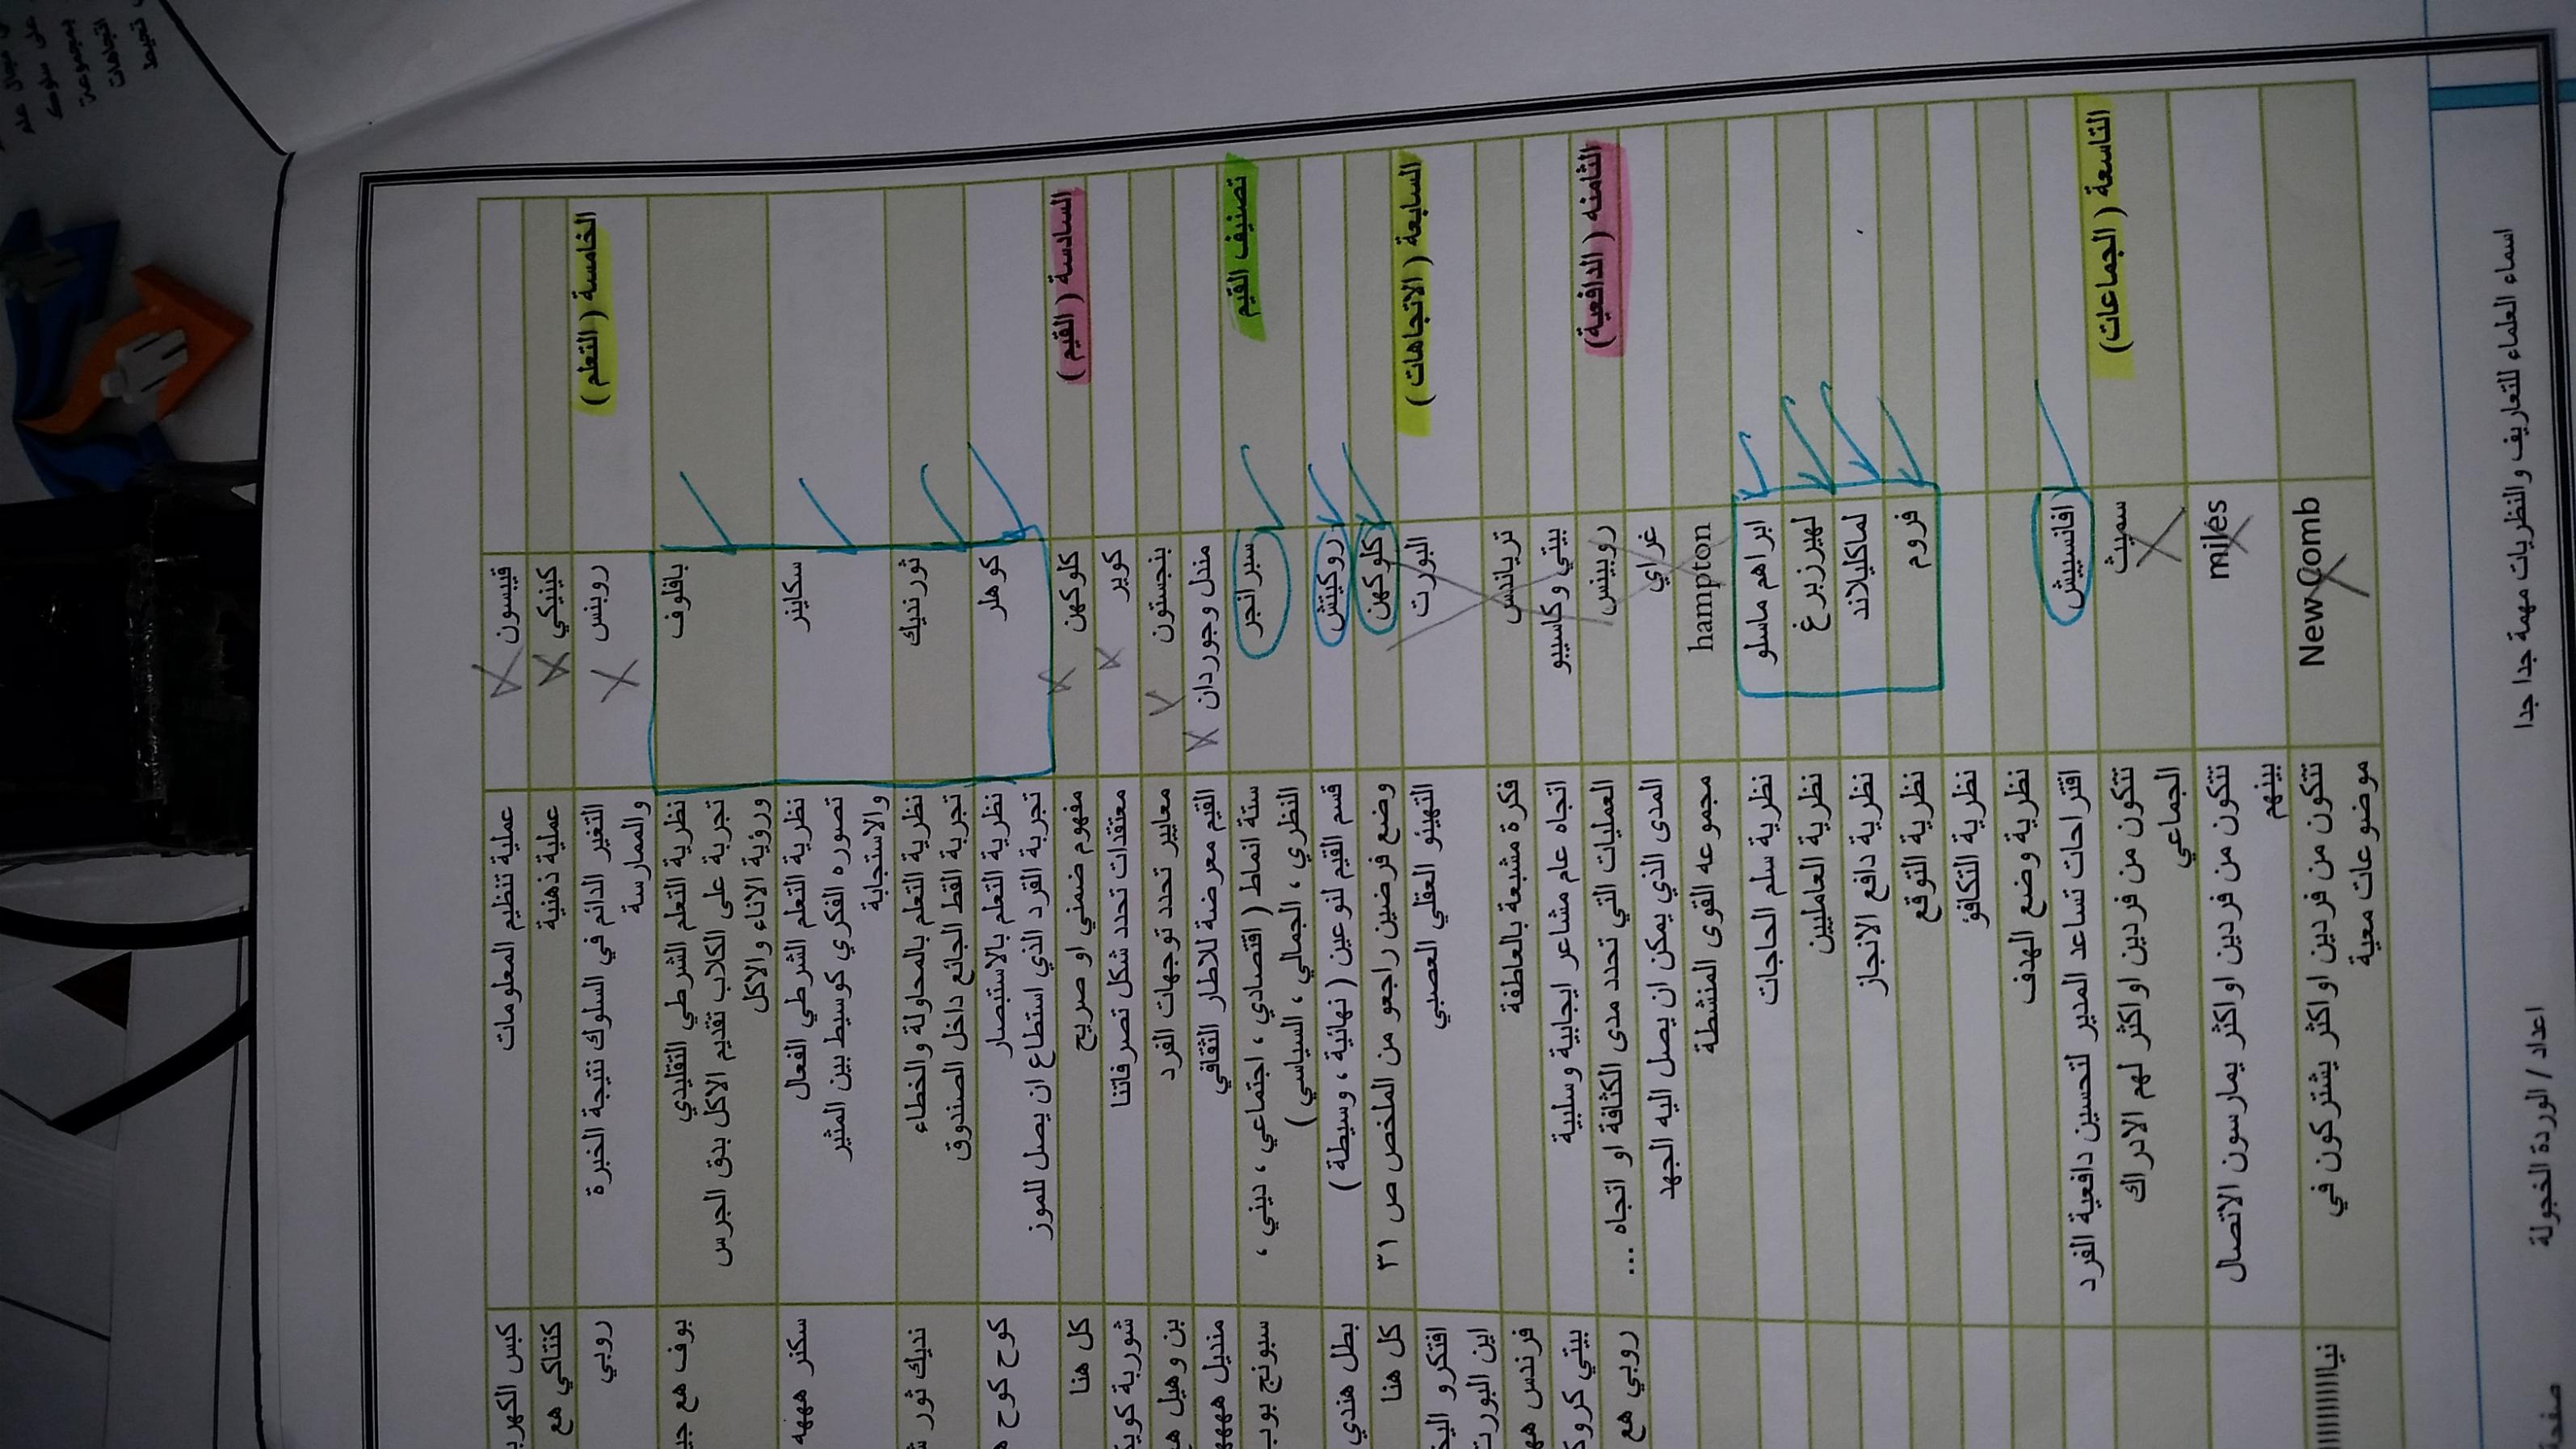 قييسون
عملية تنظيم المعلومات
كبس الكهرب
كينيكي
عملية ذهنية
كنتاكي هع
الخامسة ( التعلم )
روبنس
التغير الدائم في السلوك نتيجة الخبرة
والممارسة
روبي
بافلوف
نظرية التعلم الشرطي التقليدي
تجربة على الكلاب تقديم الاكل بدق الجرس
ورؤية الاناء والاكل
بوف هع جي
سكاينر
نظرية التعلم الشرطي الفعال
تصوره الفكري كوسيط بين المثير
والاستجابة
سكنر هههه
ثورنديك
نظرية التعلم بالمحاولة والخطاء
تجربة القط الجائع داخل الصندوق
نديك ثور
كوهلر
نظرية التعلم بالاستبصار
تجربة القرد الذي استطاع ان يصل للموز
كوح كوح
السادسة ( القيم )
كلوكهن
مفهوم ضمني او صريح
كل هنا
كوبر
معتقدات تحدد شكل تصرفاتنا
شوربة كوي
بنجستون
معايير تحدد توجهات الفرد
بن وهيل
مندل وجوردان
القيم معرضة للاطار الثقافي
منديل هههه
تصنيف القيم
سبرانجر
ستة انماط ( اقتصادي ، اجتماعي ، ديني ،
النظري ، الجمالي ، السياسي )
سبونج بوب
روكيتش
قسم القيم لنوعين ( نهائية ، وسيطة )
بطل هندي
كلوكهن
وضع فرضين راجعو من الملخص ص ٣١
كل هنا
السابعة ( الاتجاهات )
البورت
التهيئو العقلي العصبي
افتكرو
اين البورت
ترياندس
فكرة مشبعة بالعاطفة
فرندس هه
بيتي وكاسيبو
اتجاه عام مشاعر ايجابية وسلبية
بيتي كروك
الثامنه ( الدافعية)
روبينس
العمليات التي تحدد مدى الكثافة او اتجاه ...
روبي هع
غراي
المدى الذي يمكن ان يصل اليه الجهد
hampton
مجموعه القوى المنشطة
ابراهم ماسلو
نظرية سلم الحاجات
لهيرزبرغ
نظرية العامليين
لماكليلاند
نظرية دافع الانجاز
فروم
نظرية التوقع
نظرية التكافؤ
نظرية وضع الهدف
افانسيبش
اقتراحات تساعد المدير لتحسين دافعية الفرد
التاسعة ( الجماعات)
سميث
تتكون من فردين اواكثر لهم الادراك
الجماعي
miles
تتكون من فردين اواكثر يمارسون الاتصال
بينهم
New Comb
تتكون من فردين اواكثر يشتركون في
موضوعات معية
اسماء العلماء للتعاريف والنظريات مهمة جدا جدا
اعداد / الوردة الخجولة
صفحة